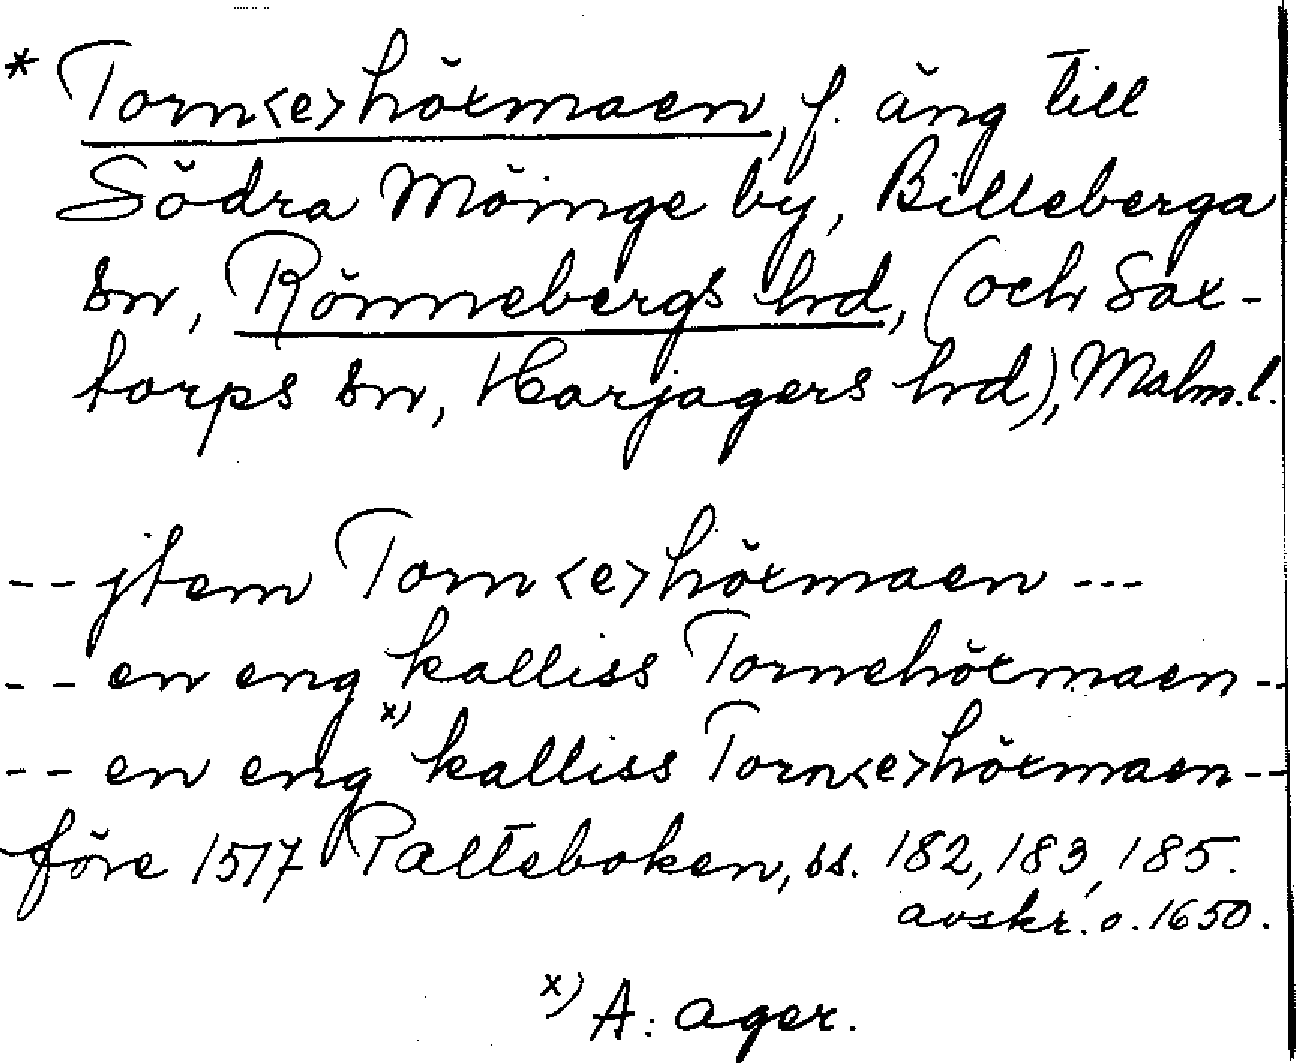 * Torn<e>höxmaen, f. äng till
Södra Möinge by, Billeberga
sn, Rönnebergs hd, (och Sax-
torps sn, Harjagers hd), Malm.l.
-- jtem Torn<e>höxmaen ---
-- en eng kalliss Tornehöxmaen --
-- en eng x) kalliss Torn<e>höxmaen --
före 1517 Palteboken, ss. 182, 183, 185.
avskr. o. 1650.
x) A: ager.